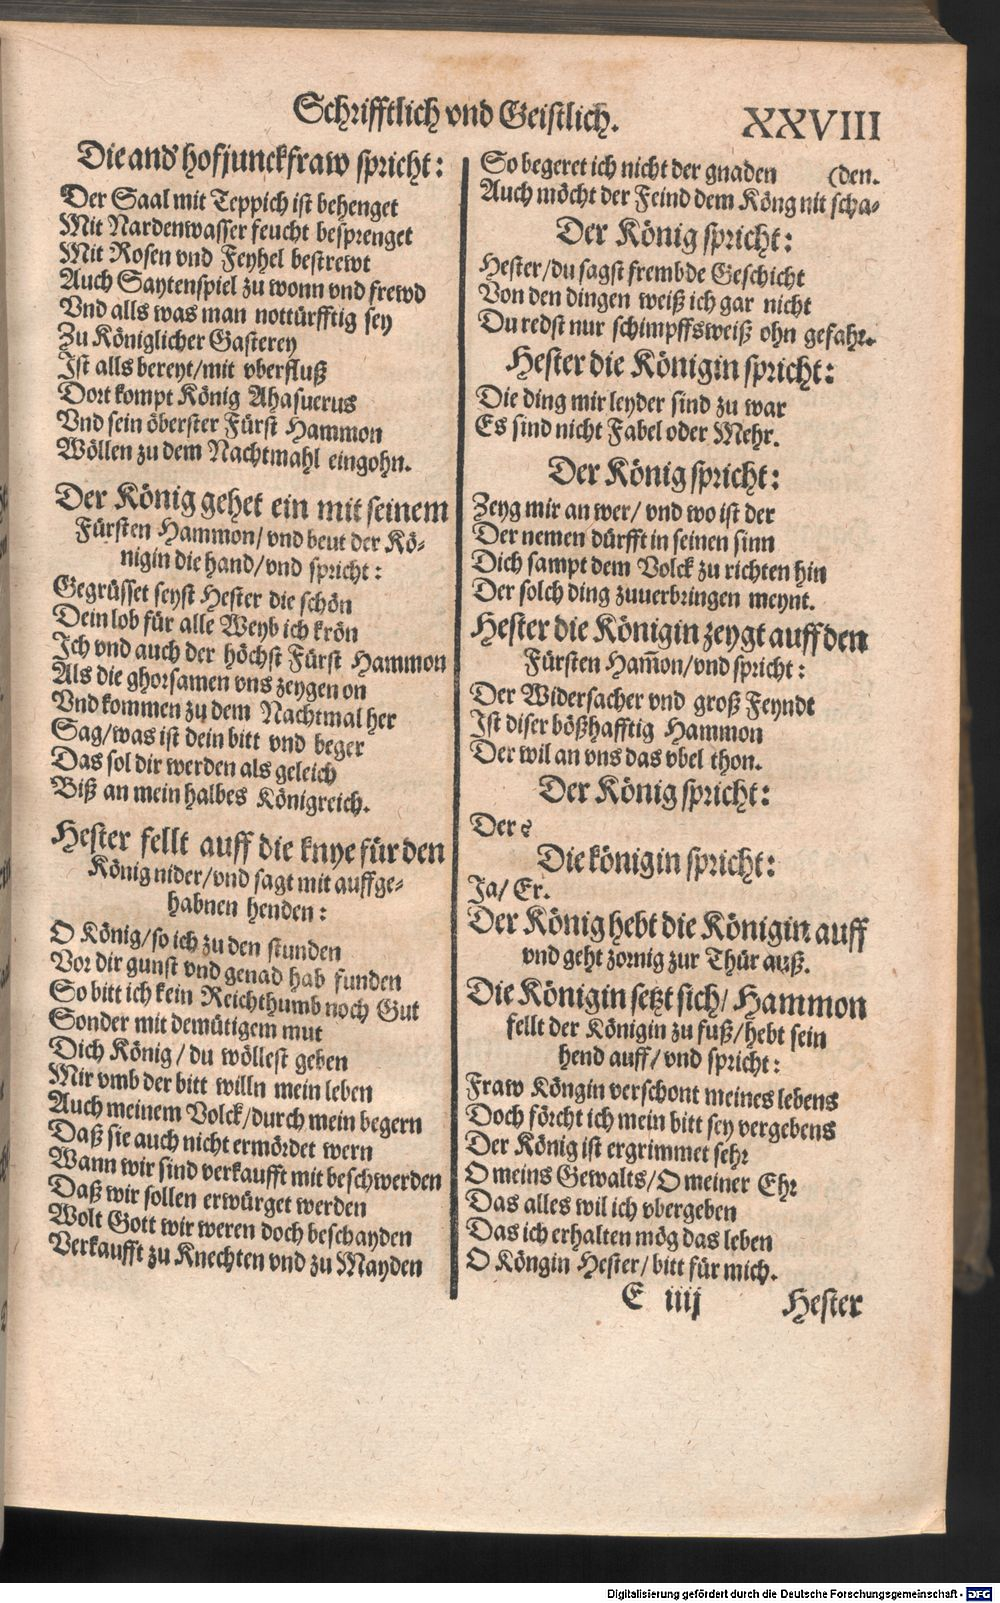 Schrifftlich vnd Geistlich.
XXVIII
Die and' hofjunckfraw spricht:
Der Saal mit Teppich ist behenget
Mit Nardenwasser feucht besprenget
Mit Rosen vnd Feyhel bestrewt
Auch Saytenspiel zu wonn vnd frewd
Vnd alls was man nottürfftig sey
Zu Königlicher Gasterey
Ist alls bereyt/mit vberfluß
Dort kompt König Ahasuerus
Vnd sein öberster Fürst Hammon
Wöllen zu dem Nachtmahl eingohn.
Der König gehet ein mit seinem
Fürsten Hammon/vnd beut der Kö-
nigin die hand/vnd spricht:
Gegrüsset seyst Hester die schön
Dein lob für alle Weyb ich krön
Ich vnd auch der höchst Fürst Hammon
Als die ghorsamen vns zeygen on
Vnd kommen zu dem Nachtmal her
Sag/was ist dein bitt vnd beger
Das sol dir werden als geleich
Biß an mein halbes Königreich.
Hester fellt auff die knye für den
König nider/vnd sagt mit auffge-
habnen henden:
O König/so ich zu den stunden
Vor dir gunst vnd genad hab funden
So bitt ich kein Reichthumb noch Gut
Sonder mit demütigem mut
Dich König/du wöllest geben
Mir vmb der bitt willn mein leben
Auch meinem Volck/durch mein begern
Daß sie auch nicht ermördet wern
Wann wir sind verkaufft mit beschwerden
Daß wir sollen erwürget werden
Wolt Gott wir weren doch beschayden
Verkaufft zu Knechten vnd zu Mayden
So begeret ich nicht der gnaden (den.
Auch möcht der Feind dem Köng nit scha-
Der König spricht:
Hester/du sagst frembde Geschicht
Von den dingen weiß ich gar nicht
Du redst nur schimpffsweiß ohn gefahr.
Hester die Königin spricht:
Die ding mir leyder sind zu war
Es sind nicht Fabel oder Mehr.
Der König spricht:
Zeyg mir an wer/vnd wo ist der
Der nemen dürfft in seinen sinn
Dich sampt dem Volck zu richten hin
Der solch ding zuuerbringen meynt.
Hester die Königin zeygt auff den
Fürsten Ham̄on/vnd spricht:
Der Widersacher vnd groß Feyndt
Ist diser bößhafftig Hammon
Der wil an vns das vbel thon.
Der König spricht:
Der?
Die königin spricht:
Ja/Er.
Der König hebt die Königin auff
vnd geht zornig zur Thür auß.
Die Königin setzt sich/Hammon
fellt der Königin zu fuß/hebt sein
hend auff/vnd spricht:
Fraw Köngin verschont meines lebens
Doch förcht ich mein bitt sey vergebens
Der König ist ergrimmet sehr
O meins Gewalts/O meiner Ehr
Das alles wil ich vbergeben
Das ich erhalten mög das leben
O Köngin Hester/bitt für mich.
E iiij
Hester
Digitalisierung gefördert durch die Deutsche Forschungsgemeinschaft - DFG